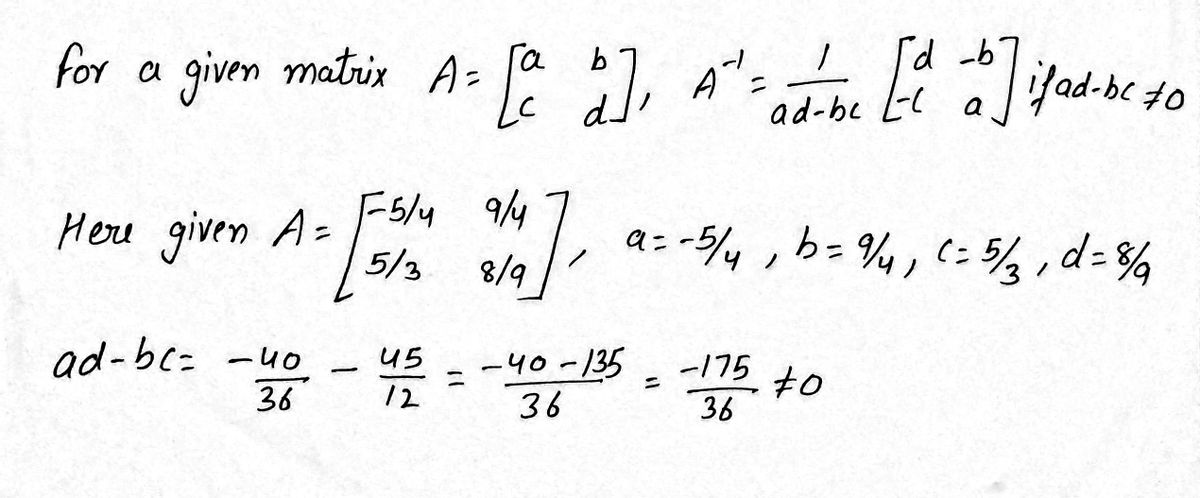 for a given matrix A = [a b; c d], A⁻¹ = 1/(ad-bc) [d -b; -c a] if ad-bc ≠0
Here given A = [-5/4 9/4; 5/3 8/9], a = -5/4, b = 9/4, c = 5/3, d = 8/9
ad-bc = -40/36 - 45/12 = (-40-135)/36 = -175/36 ≠0